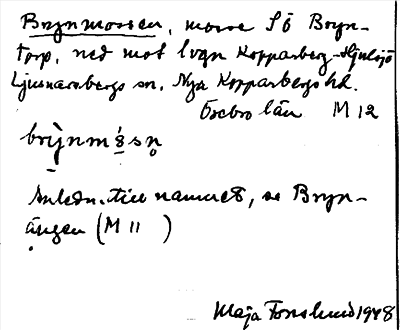 Brynmossen, mosse SÖ Bryn-
torp, ned mot lvgn Kopparberg-Hjulsjö
Ljusnarsbergs sn. Nya Kopparbergs hd.
Örebro län M 12
brỳnmśsn̥
Anledn. till namnet, se Bryn-
ängen (M 11 )
Maja Forslund 1948